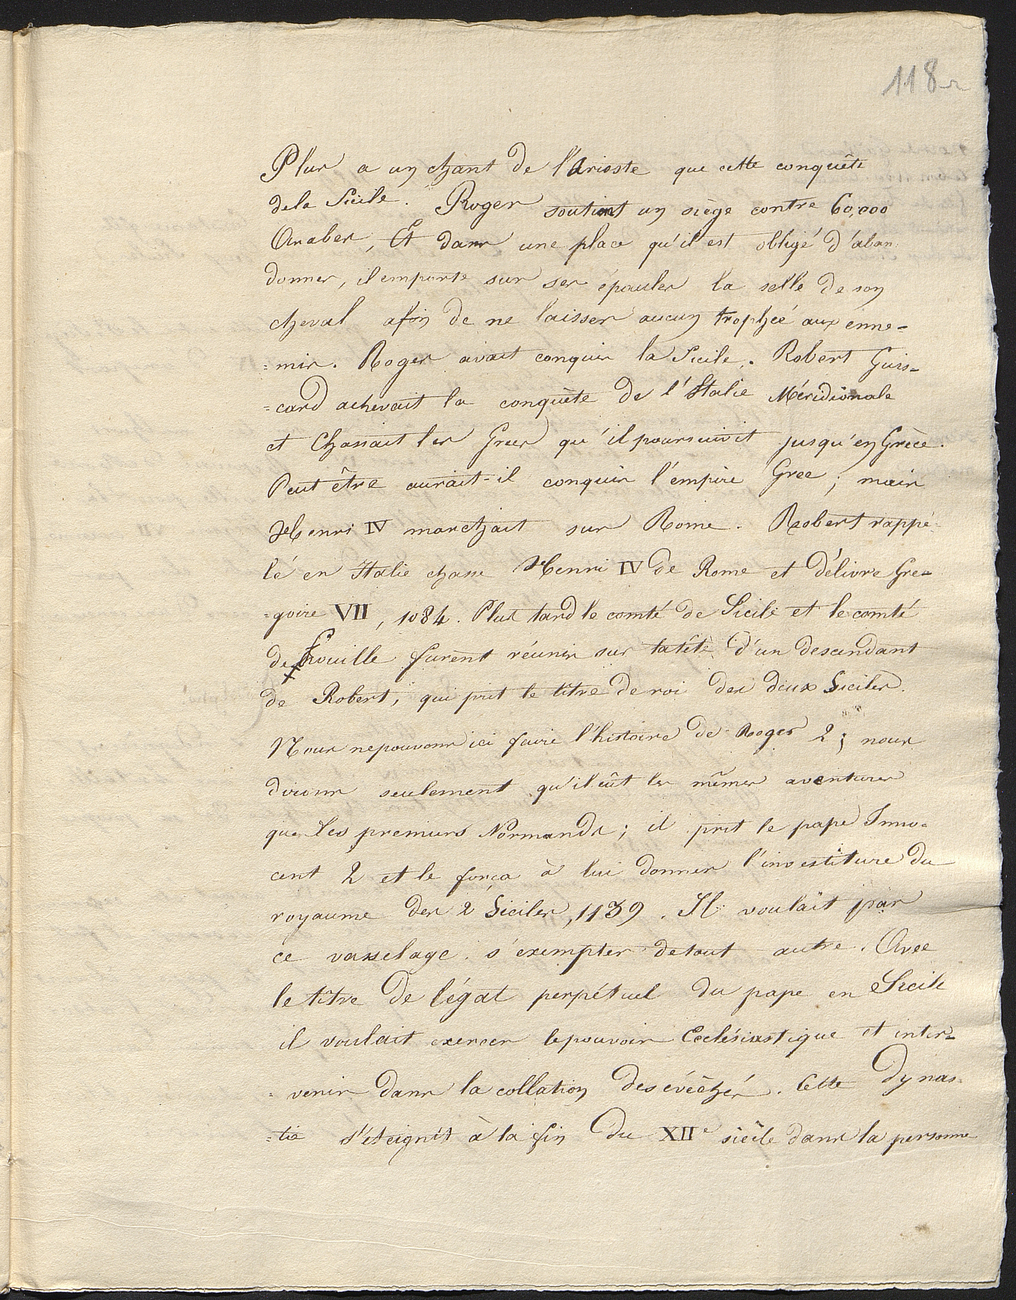 118 r
Plus a un chant de l'Arioste que cette conquête
de la Sicile. Roger soutient un siège contre 60,000
Arabes, Et dans une place qu'il est obligé d'aban
donner, il emporte sur ses épaules la selle de son
cheval afin de ne laisser aucun trophée aux enne-
=mis. Roger avait conquis la Sicile. Robert Guis=
=card achevait la conquête de l'Italie Méridionale
et chassait les Grecs qu'il poursuivit jusqu'en Grèce.
Peut être aurait-il conquis l'empire Grec ; mais
Henri IV marchait sur Rome. Robert rappe-
lé en Italie chasse Henri IV de Rome et délivre Gré=
=goire VII, 1084. Plus tard le comté de Sicile et le comté
de Pouille furent réunis sur la tête d'un descendant
de Robert, qui prit le titre de roi des deux Siciles.
Nous ne pouvons ici faire l'histoire de Roger 2 ; nous
dirons seulement qu'il eût les mêmes aventures
que les premiers Normands ; il prit le pape Inno-
cent 2 et le força à lui donner l'investiture du
royaume des 2 Siciles, 1139. Il voulait par
ce vasselage s'exempter de tout autre. Avec
le titre de légat perpétuel du pape en Sicile
il voulait exercer le pouvoir Ecclésiastique et inter=
=venir dans la collation des évêchés. Cette dynas-
=tie s'éteignit à la fin du XIIe siècle dans la personne